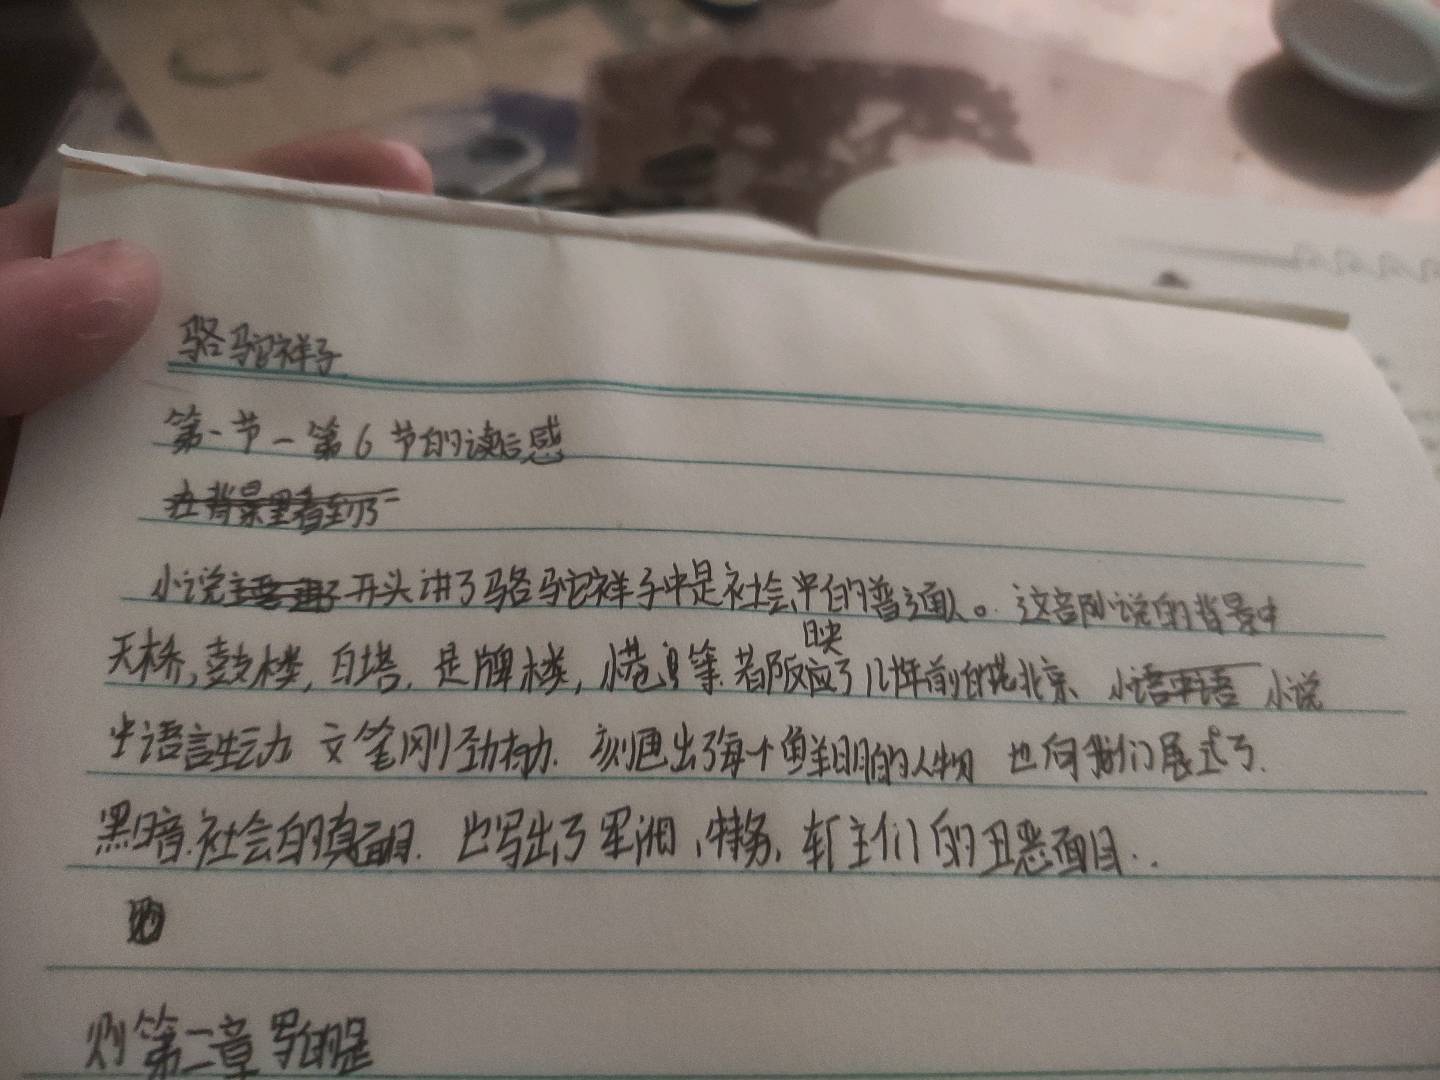 骆驼祥子
第一节一第6节的读后感
在背景里看到了
小说开头讲了骆驼祥子中是社会中的普通人。这部小说的背景中
天桥,鼓楼,白塔.是牌楼,小巷等.都反映了几十年前的老北京、小语中语 小说
中语言生动 文笔刚劲. 刻画出了每个鲜明的人物 也向我们展式了.
黑暗.社会的真面目. 也写出了军阀、特务、车主们的丑恶面目..
则第二章写的是